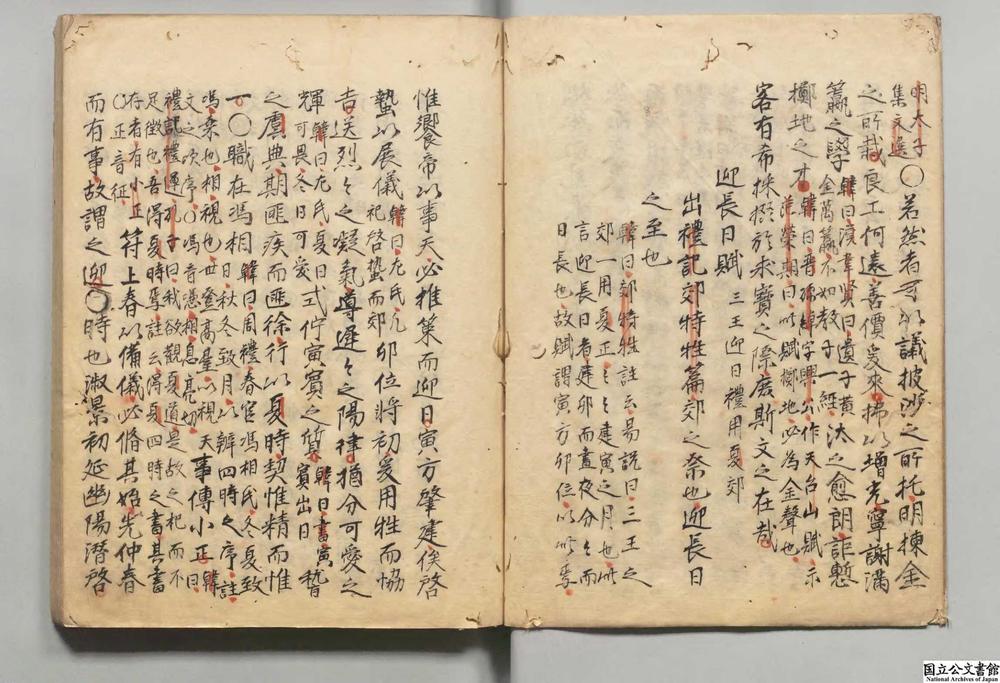 明太子
集文選〇若然者可以議披沙之所托明揀金
之所哉良工何遠善價爰來拂以增光寧謝滿
籯之學韓曰漢韋賢曰遺子黃
金萬籯不如教子一經汰之愈朗詎慙
擲地之才韓曰晉孫綽字興公作天台山賦示
范榮期曰此賦擲地必為金聲也
客有希採掇於求寶之際庶斯文之在哉
迎長日賦 三王迎日禮用夏郊
出禮記郊特牲篇郊之祭也迎長日
之至也
韓曰郊特牲註云易說曰三王之
郊一用夏正之建寅之月也此
言迎長日者建卯而晝夜分之而
日長也故賦謂寅方卯位以此焉
惟饗帝以事天必推策而迎日寅方肇建俟啓
蟄以展儀韓曰左氏凡
祀啓蟄而郊卯位將初爰用牲而協
吉送烈之之凝氣導遲之之陽律猶分可愛之
輝韓曰左氏夏日
可畏冬日可愛式佇寅賓之質韓曰書寅
賓出日暬
之虞典期匪疾而匪徐行以夏時契惟精而惟
一〇職在馮相韓曰周禮春官馮相氏冬夏致
日秋冬致月以辨四時之序註
馮乘也相視也世登高臺以視天
文之次序〇馮音憑相息亮切事傳小正韓曰
禮記禮運孔子曰我欲觀夏道是故之杞而不
足徵也吾得夏時焉註云得夏四時之書其書
存者有小正
〇正音征符上春以備儀必脩其始先仲春
而有事故謂之迎〇時也淑景初延幽陽潛啓
国立公文書館
National Archives of Japan